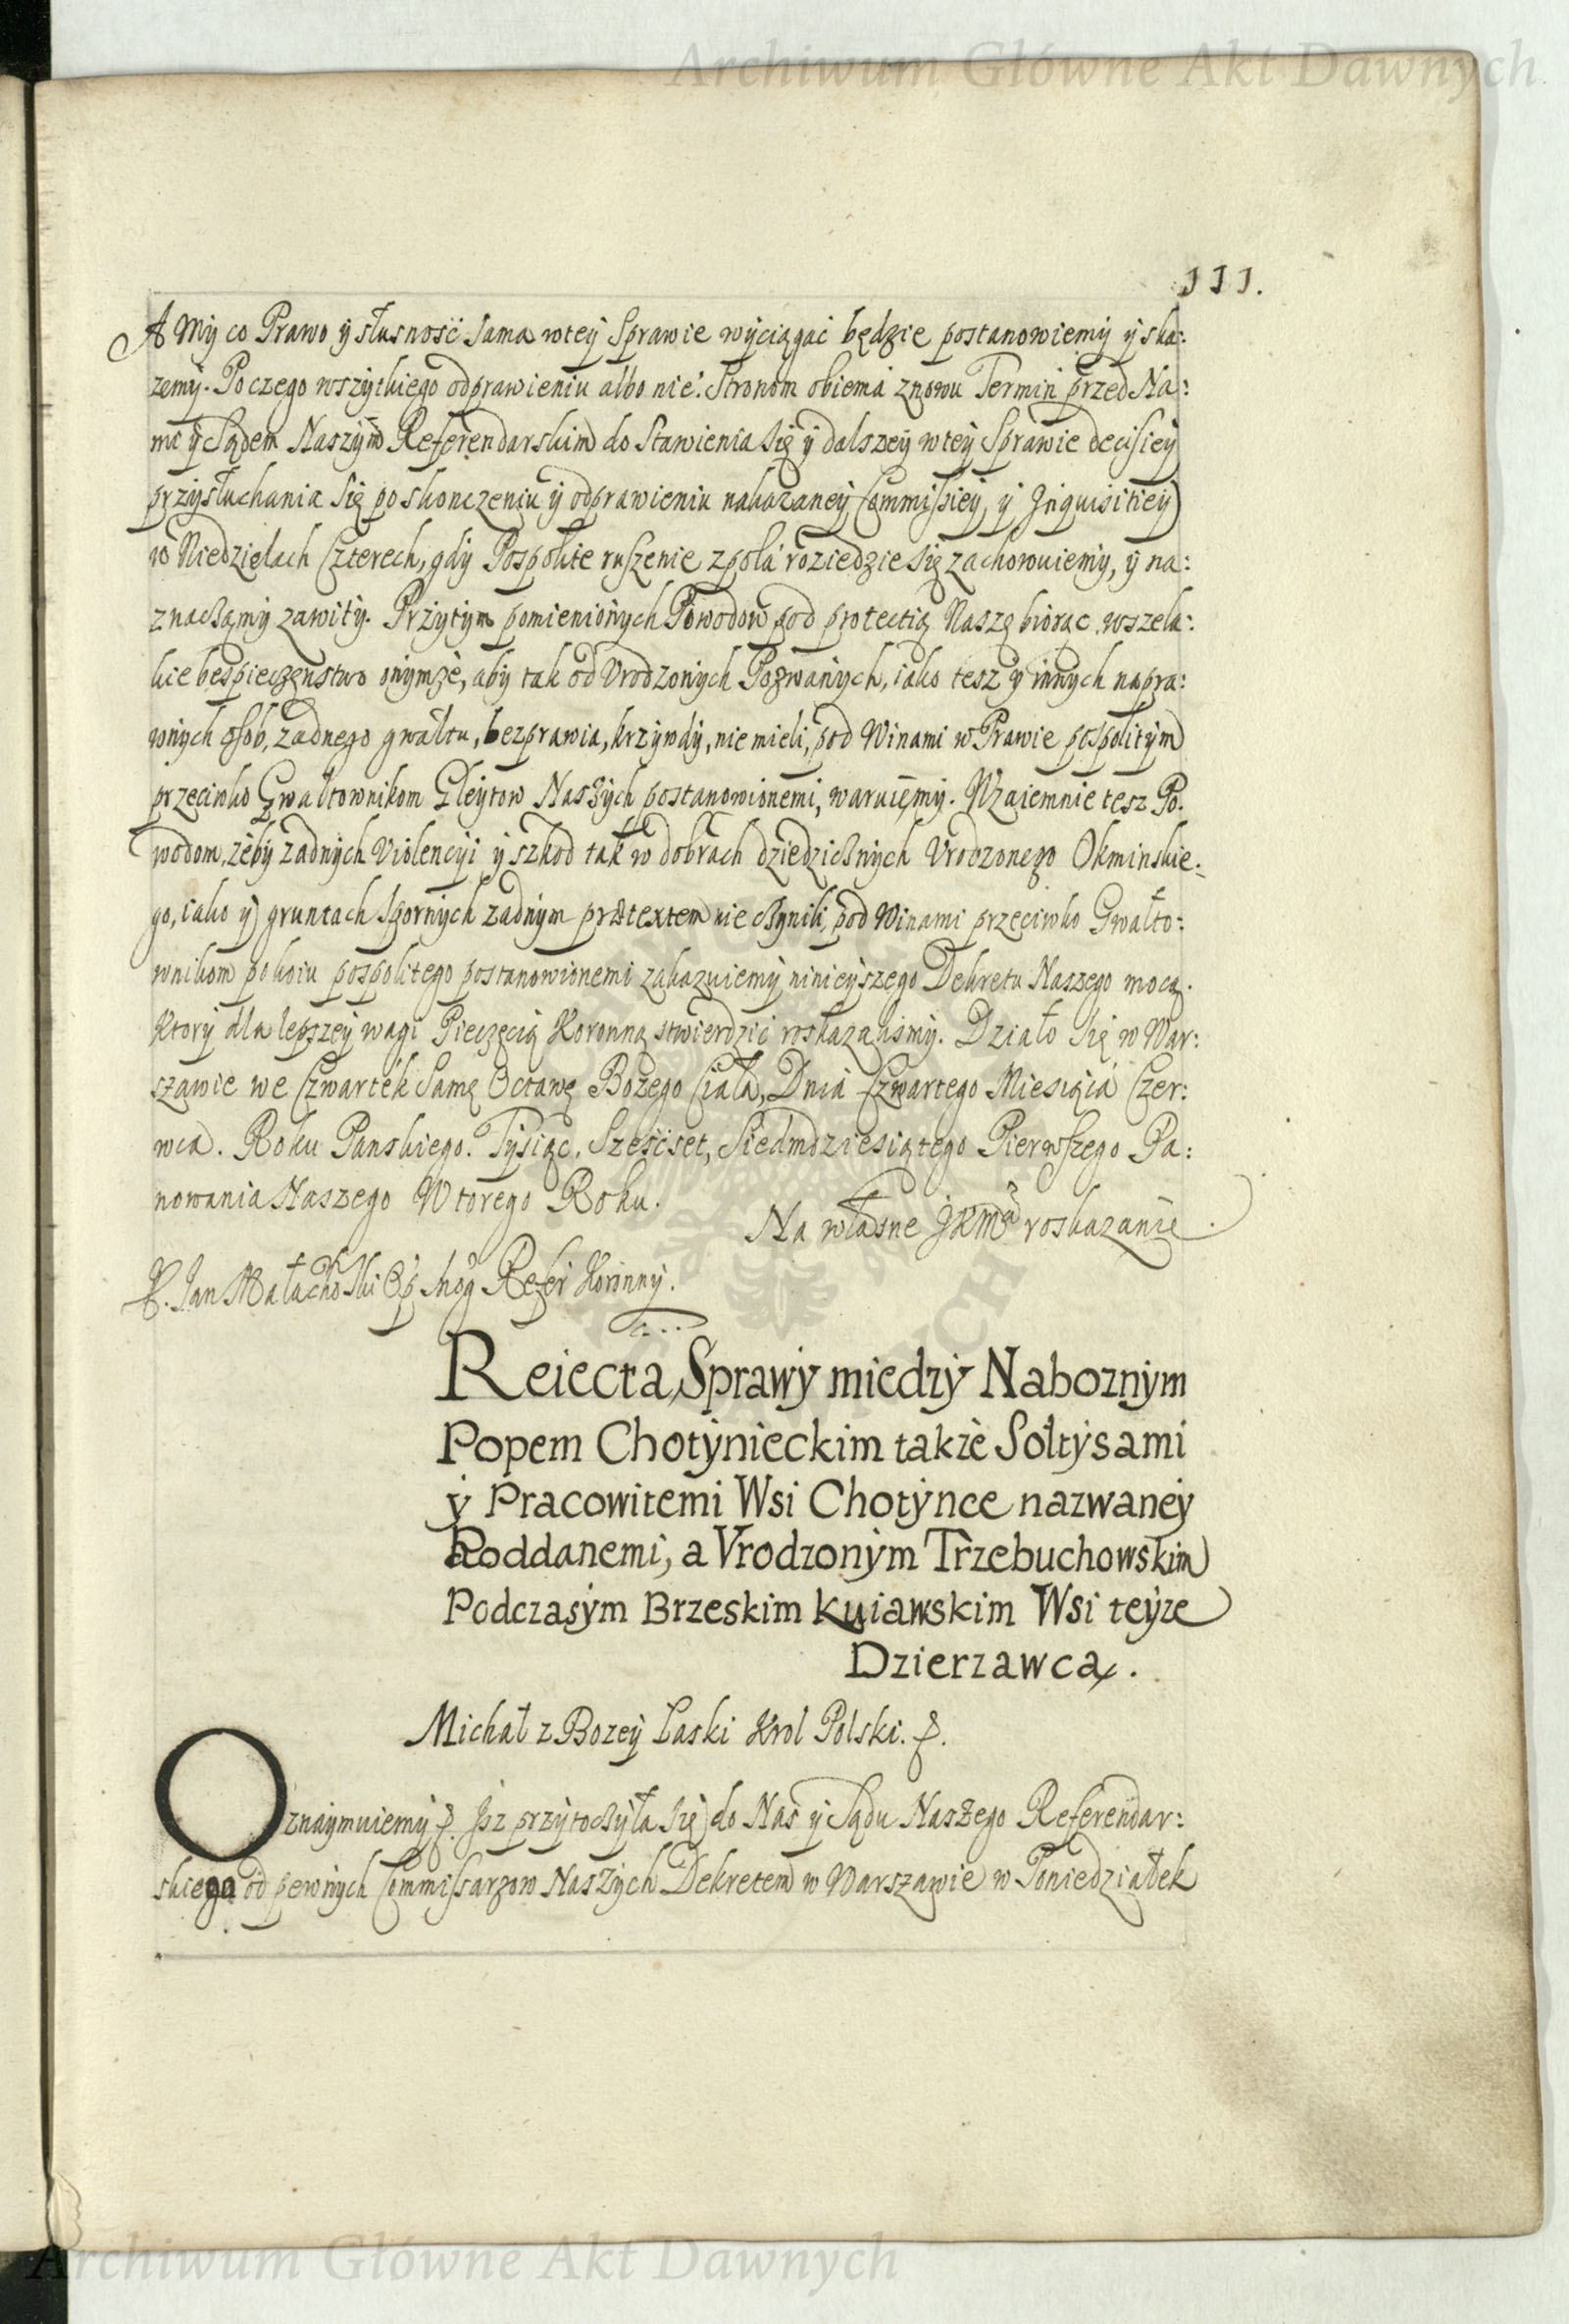 Archiwum Główne Akt Dawnych
111.
A My co Prawo ÿ słusność sama wteÿ Sprawie wyciągać będzie postanowiemÿ ÿ ska:
zemÿ. Po czego wszÿtkiego odprawieniu albo nie: Stronom obiema znowu Termin przed Na:
mi ÿ Sądem Naszÿm Referendarskim do Stawienia się ÿ dalszeÿ wteÿ Sprawie decisieÿ
przÿsłuchania się po skonczeniu ÿ odprawieniu nakazaneÿ Commissieÿ ÿ Inquisitieÿ
w Niedzielach Czterech, gdÿ Pospolite ruszenie z pola roziedzie się zachowuiemÿ, ÿ na:
znaczamÿ zawitÿ. Przÿtÿm pomienionÿch Powodow pod protectią Naszę biorąc wszela:
kie bespieczenstwo onÿmze, abÿ tak od Vrodzonÿch Pozwanÿch, iako tesz ÿ innÿch napra:
wnÿch osob, zadnego gwałtu, bezprawia, krzÿwdÿ, nie mieli, pod Winami w Prawie pospolitÿm
przeciwko Gwałtownikom Gleÿtow Naszÿch postanowionemi, waruiemÿ. Wzaiemnie tesz Po:
wodom, zebÿ zadnÿch Violencÿi ÿ szkod tak w dobrach dziedzicznÿch Vrodzonego Okminskie:
go, iako ÿ gruntach spornÿch zadnÿm prætextem nie czÿnili, pod Winami przeciwko Gwałto:
wnikom pokoiu pospolitego postanowionemi zakazuiemÿ ninieÿszego Dekretu Naszego mocą.
Ktorÿ dla lepszeÿ wagi Pieczęcią Koronną stwierdzić roskazalismÿ. Działo się w War:
szawie we Czwartek Samę Octawę Bozego Ciała, Dnia Czwartego Miesiąca Czer:
wca. Roku Panskiego. Tÿsiąc, Sześćset, Siedmdziesiątego Pierwszego Pa:
nowania Naszego Wtorego Roku.
Na własne JKMci roskazanie.
X. Jan Małachoski Op Mog Refer Koronnÿ.
Reiecta Sprawÿ miedzÿ Naboznÿm
Popem Chotÿnieckim takze Sołtÿsami
ÿ Pracowitemi Wsi Chotÿnce nazwaneÿ
Poddanemi, a Vrodzonÿm Trzebuchowskim
Podczasÿm Brzeskim Kuiawskim Wsi teÿze
Dzierzawcą.
Michał z Bozeÿ Łaski Krol Polski. &.
Oznaÿmuiemÿ &. Jsz przÿtoczÿła się do Nas ÿ Sądu Naszego Referendar:
skiego od pewnÿch Commissarzow Naszÿch Dekretem w Warszawie w Poniedziałek
Archiwum Główne Akt Dawnych